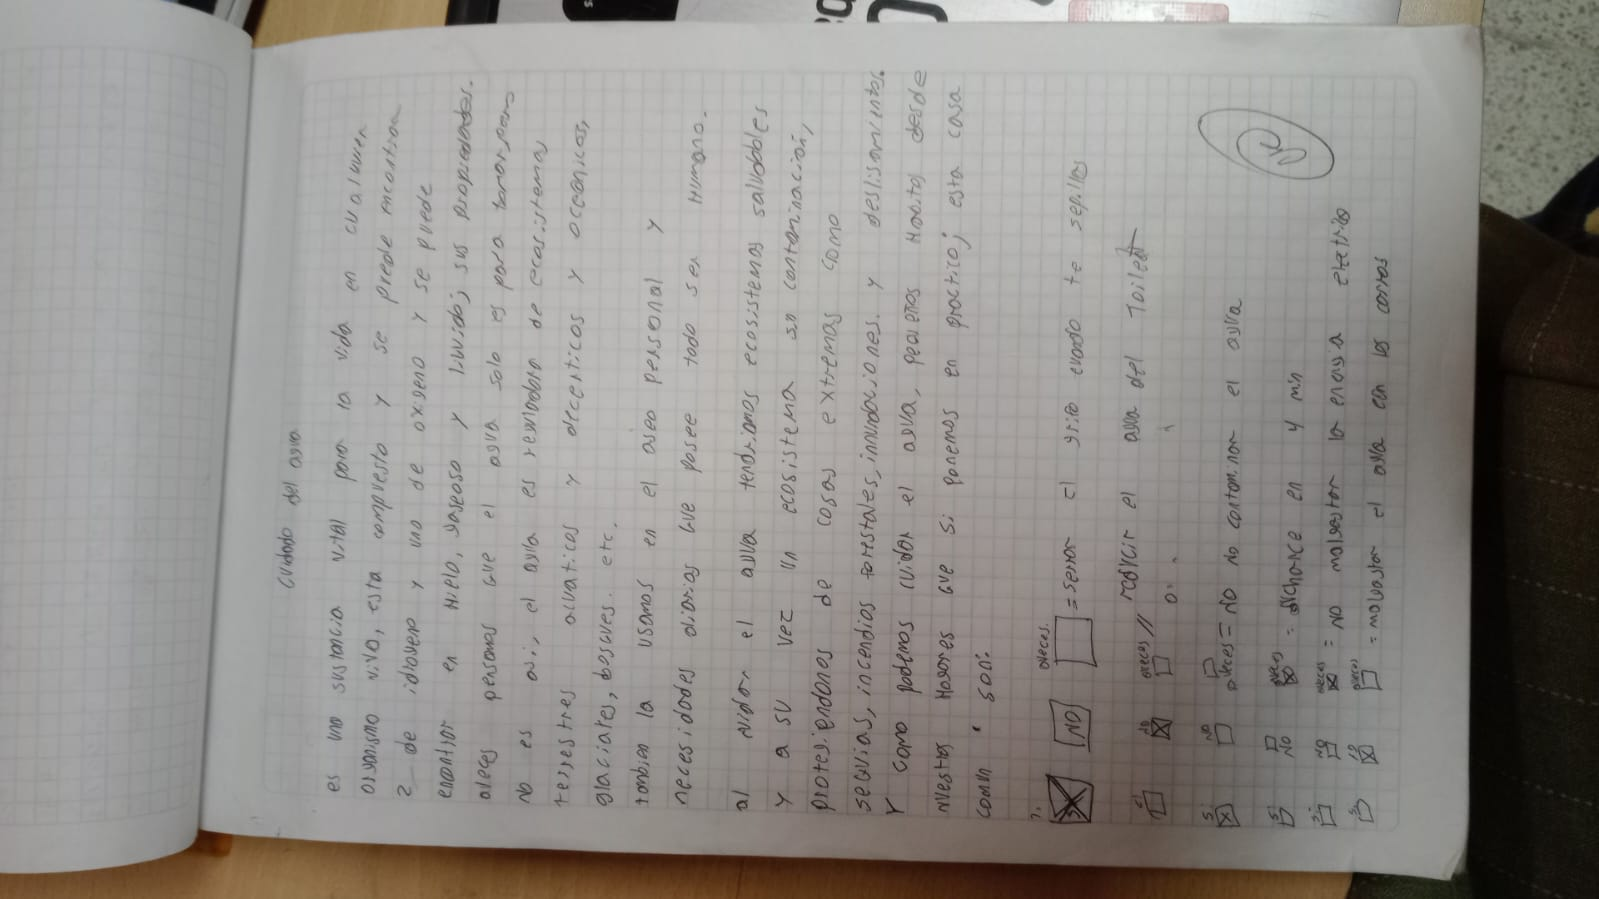 cuidado del agua
es una sustancia vital para la vida en cualquier
organismo vivo, esta compuesto y se prede encontrar
2 de idrogeno y uno de oxigeno y se puede
enontror en Hielo, gaseoso y liuido; sus propiedades.
aleces pensamos que el agua solo es para tomar, pero
no es asi, el agua es reguladora de ecosistemas
terrestres acuaticos y decerticos y oceanicos,
glaciares, bosques. etc.
tambien la usamos en el aseo personal y
necesidades diarias que posee todo ser Humano.
al cuidar el agua tendriamos ecosistemas saludables
y a su vez un ecosistema sin contaminación,
protegiendonos de cosas extremas como
sequias, incendios forestales, innudaciones. y deslisamientos.
Y como podemos cuidar el agua, pequeños Habitos desde
nuestros Hogares que si ponemos en practico; esta casa
comun son:
1. si NO aveces. = serrar el grifo cuando te sepilles
si no aveces // reducir el agua del Toilet
si no aveces = no no contaminar el agua
si no aveces = ducharce en 4 min
si no aveces = no malgastar la energia electrica
si no aveces = malgastar el agua con los carros